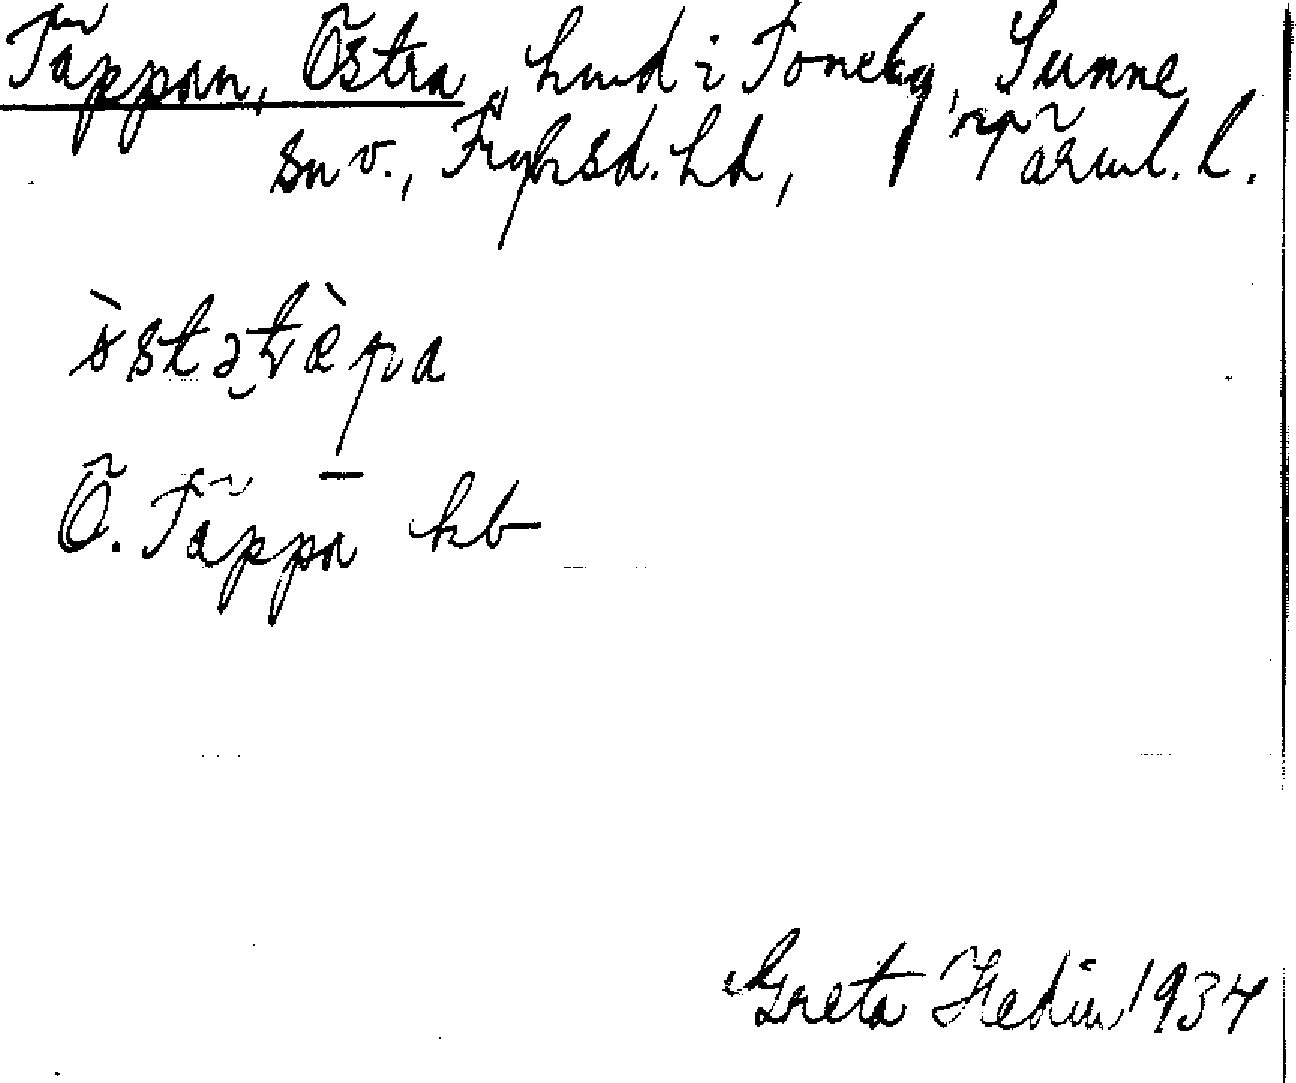 Täppan, Östra, hmd i Toneby, Sunne
sn v., Fryksd. hd, Värml. l.
östətæpa
Ö. Täppa kb
Greta Hedin 1934